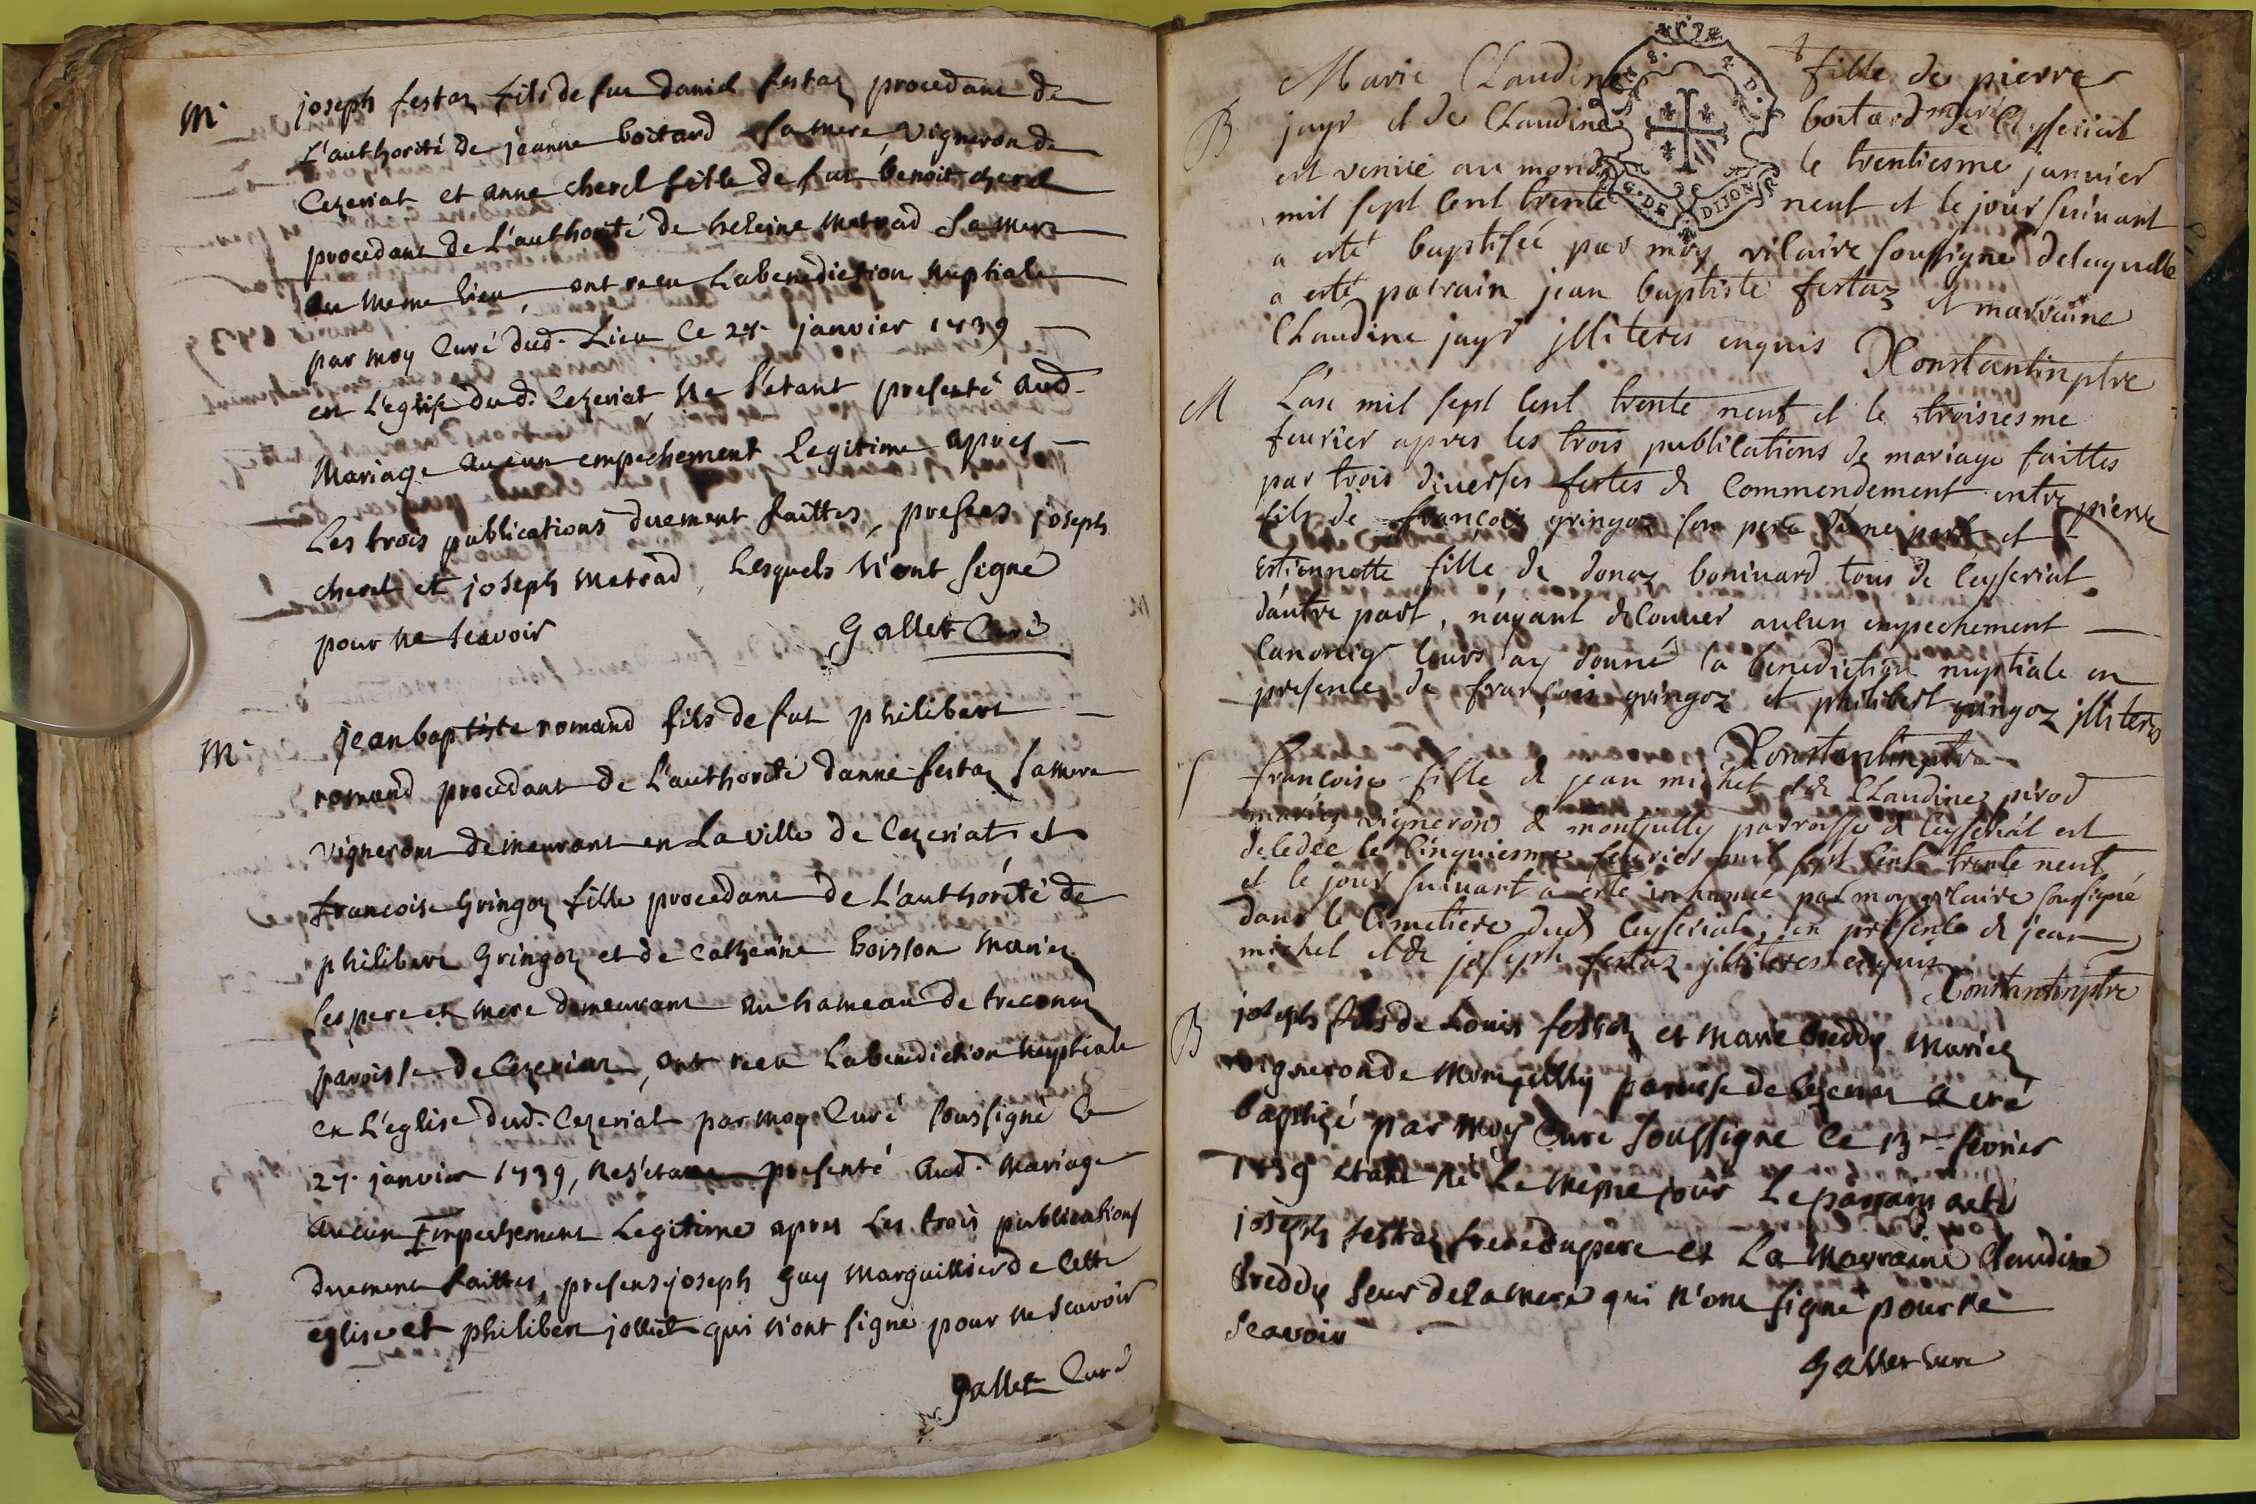 M^r joseph festaz fils de feu daniel festaz procedant de
L'authorité de jeanne boitard sa mere, vigneron de
Cezeriat et anne cherel fille de feu benoit cherel
procedant de L'authorité de heleine metrad sa mere
du meme lieu, ont receu La benediction nuptiale
par moy Curé dud. Lieu Ce 27 janvier 1739
en L'eglise dud. Cezeriat, ne s'etant presenté aud.
Mariage aucun empechement Legitime apres
Les trois publications duement faittes, presens joseph
cherel et joseph metrad, Lesquels n'ont signé
pour ne scavoir
Gallet Curé
M^r jean baptiste romand fils de fut philibert
romand procedant de L'authorité danne festaz sa mere
vigneront demeurant en La ville de Cezeriat et
francoise Gringoz fille procedant de L'authorité de
philibert Gringoz et de Catherine boisson mariez
ses pere et mere demeurant au hameau de treconnaz
paroisse de Cezeriat, ont receu La benediction nuptiale
en L'eglise dud. Cezeriat par moy Curé soussigné Ce
27. janvier 1739, ne s'etant presenté aud. mariage
aucun Empechement Legitime apres Les trois publications
duement faittes, presens joseph Guy marguillier de Cette
eglise et philibert jolliet qui n'ont signé pour ne scavoir
Gallet Curé
Marie Claudine fille de pierre
B jayr et de Claudine boitard mariés de Ceyseriat
est venüe au monde le trentiesme janvier
mil sept Cent trente neuf et le jour suivant
a esté baptisée par moy vicaire soussigné delaquelle
a esté patrain jean baptiste festaz et marraine
Claudine jayr jlliteres enquis Constantin ptre
M L'an mil sept Cent trente neuf et le troisiesme
feurier apres les trois publications de mariage faittes
par trois diverses festes de Commendement entre pierre
fils de françois gringoz son pere d'une part et
estiennette fille de donaz boniuard tous de Ceyseriat
dautre part, n'ayant decouuer aucun empechement
Canonicq leurs ay donné la benediction nuptiale en
presence de françois gringoz et philibert gringoz jlliteres
Constantin ptre
françoise fille de jean michel et de Claudine pirod
mariés vignerons de montjully parroisse de Ceyseriat est
decedée le Cinquiesme feurier mil sept Cent trente neuf
et le jour suivant a esté inhumée par moy vicaire soussigné
dans le Cimetiere dud Ceyseriat, en presence de jean
michel et de joseph festaz jlliteres enquis
Constantin ptre
B joseph fils de Louis festaz et marie breddy mariez
vigneron de Montjully paroisse de Cezeriat a eté
baptizé par moy Curé soussigné Ce 13^me fevrier
1739 etant né Le meme jour Le parrain a eté
joseph festaz frere du pere et La marraine Claudine
breddy seur de La mere qui n'ont signé pour ne
scavoir
Gallet Curé